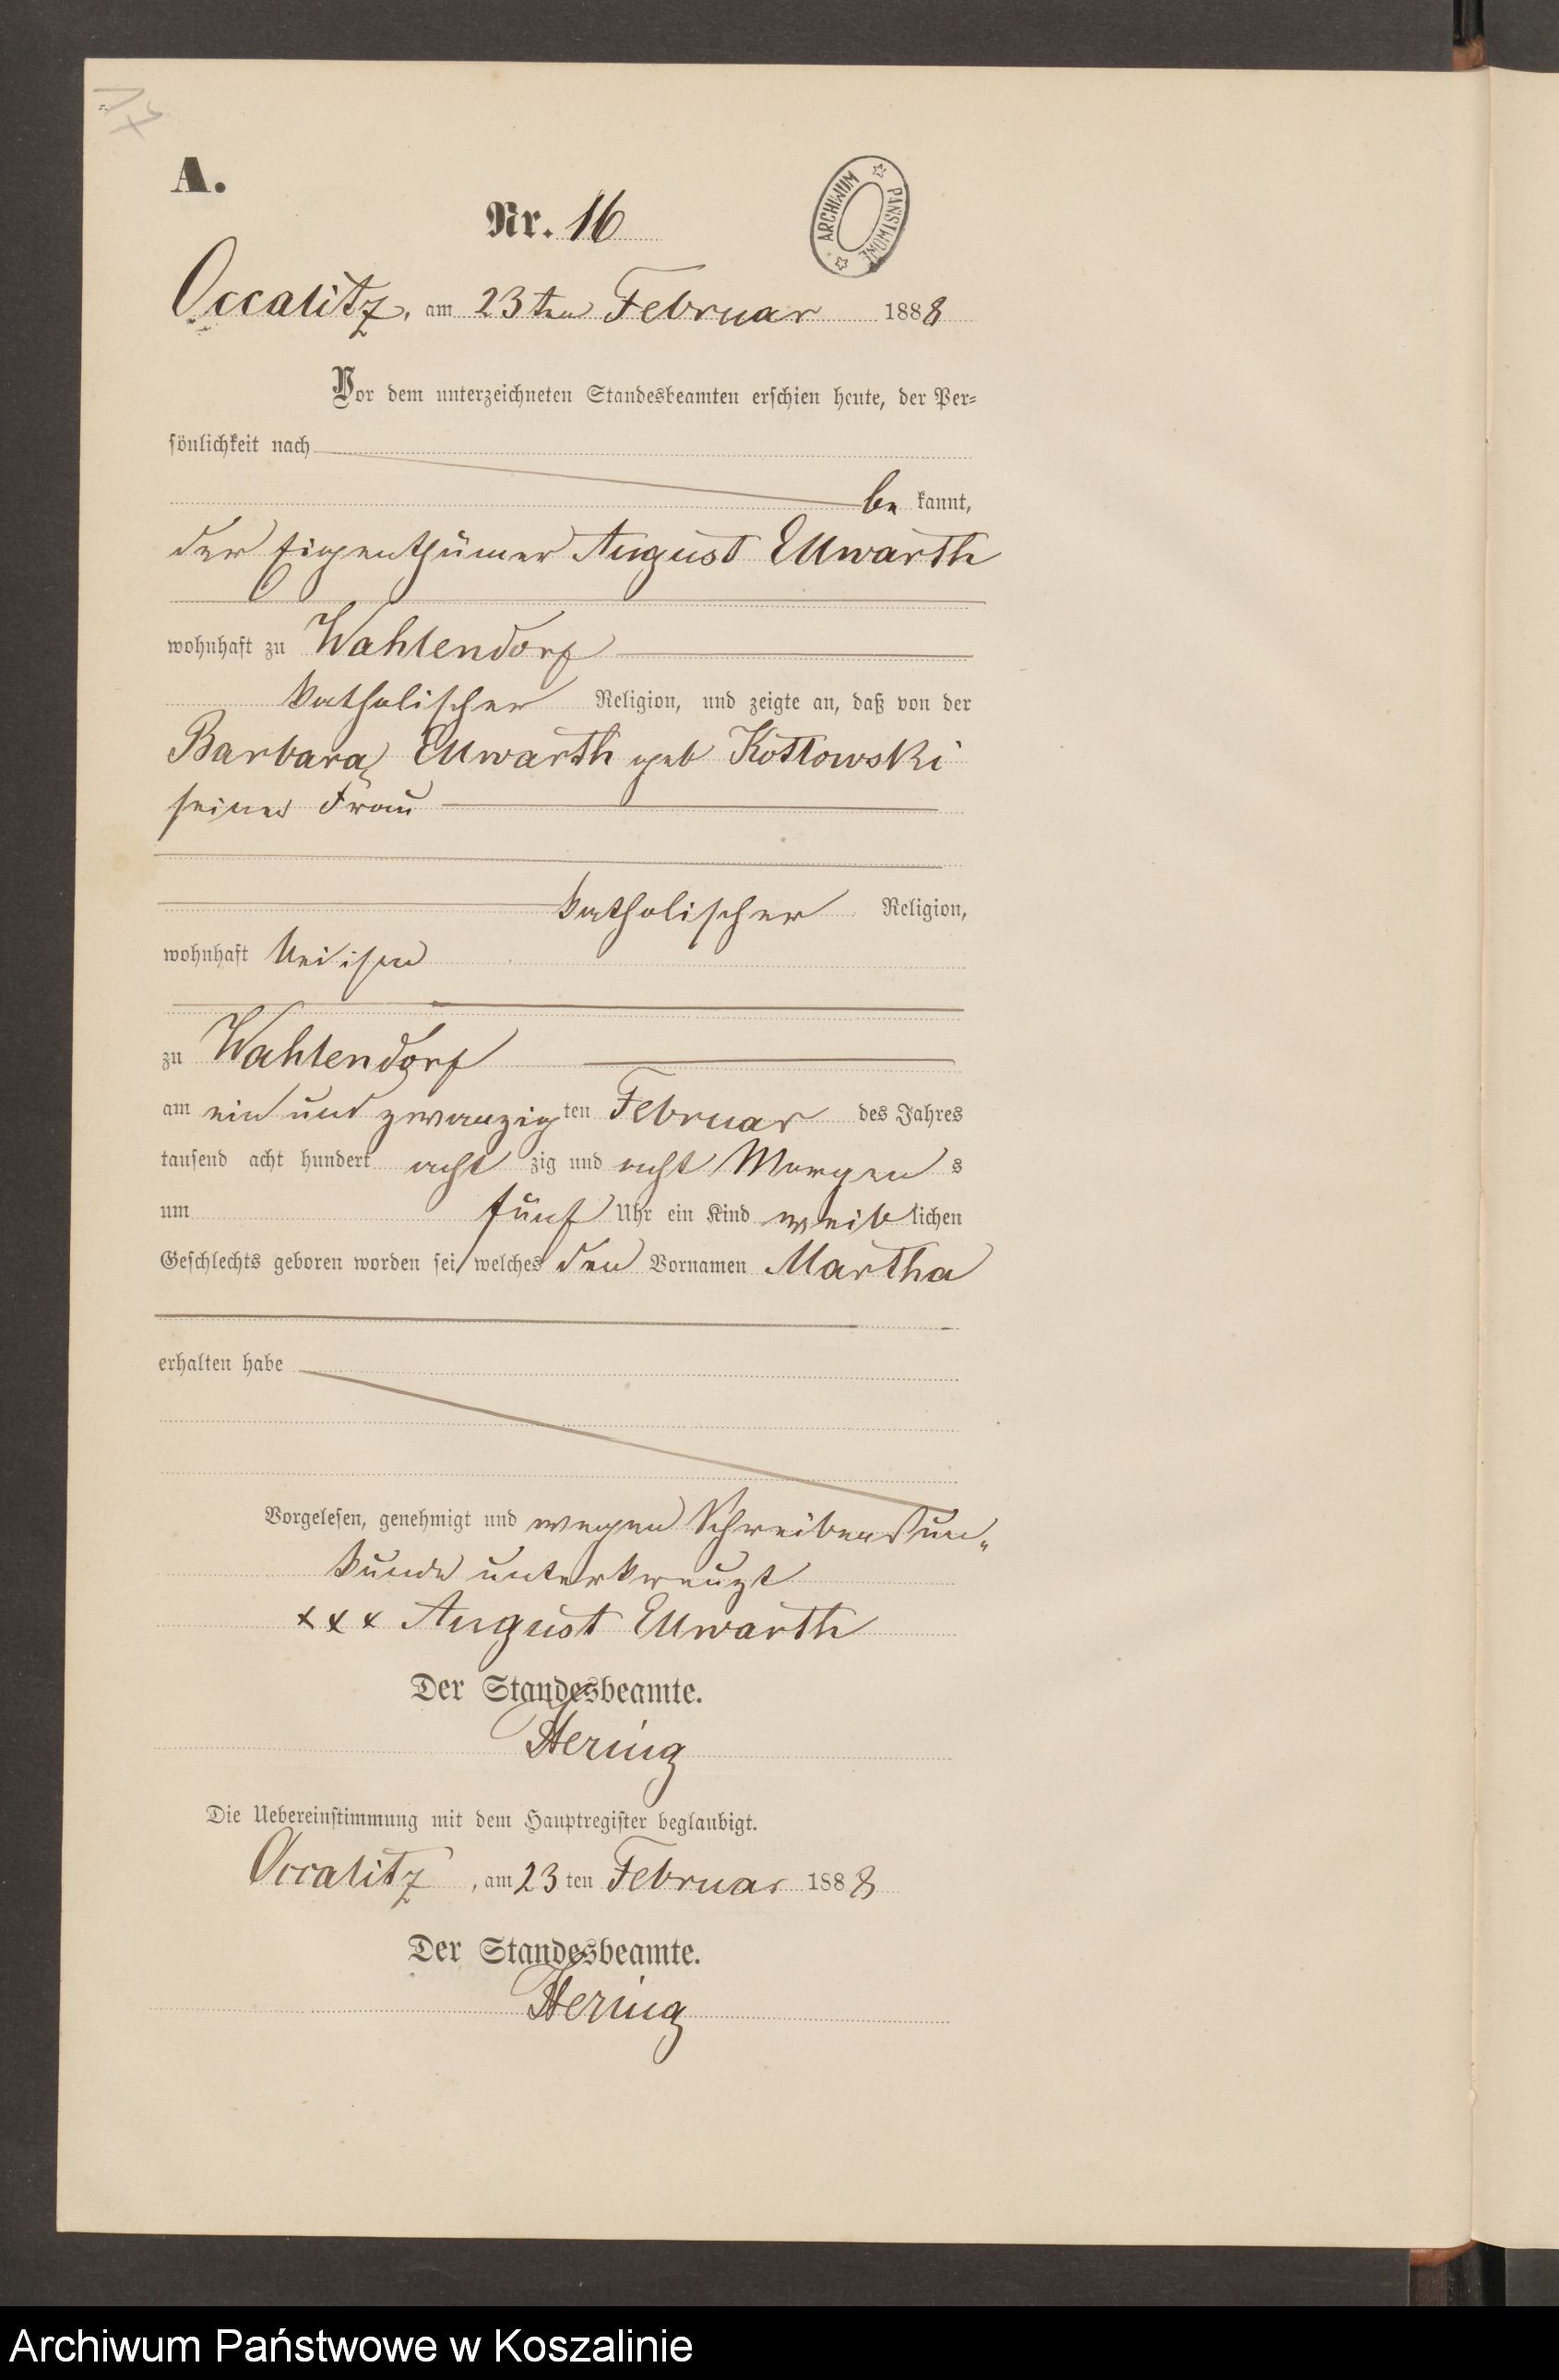 A.
Nr. 16
ARCHIWUM PAŃSTWOWE
Occalitz, am 23ten Februar 1888
Vor dem unterzeichneten Standesbeamten erschien heute, der Per-
sönlichkeit nach
be kannt,
der Eigenthümer August Ellwarth
wohnhaft zu Wahlendorf
katholischer Religion, und zeigte an, daß von der
Barbara Ellwarth geb Kotlowski
seiner Frau
katholischer Religion,
wohnhaft bei ihm
zu Wahlendorf
am ein und zwanzig ten Februar des Jahres
tausend acht hundert acht zig und acht Morgen s
um fünf Uhr ein Kind weib lichen
Geschlechts geboren worden sei, welches den Vornamen Martha
erhalten habe
Vorgelesen, genehmigt und wegen Schreibensun-
kunde unterkreuzt
xxx August Ellwarth
Der Standesbeamte.
Hering
Die Uebereinstimmung mit dem Hauptregister beglaubigt.
Occalitz, am 23 ten Februar 1888
Der Standesbeamte.
Hering
Archiwum Państwowe w Koszalinie